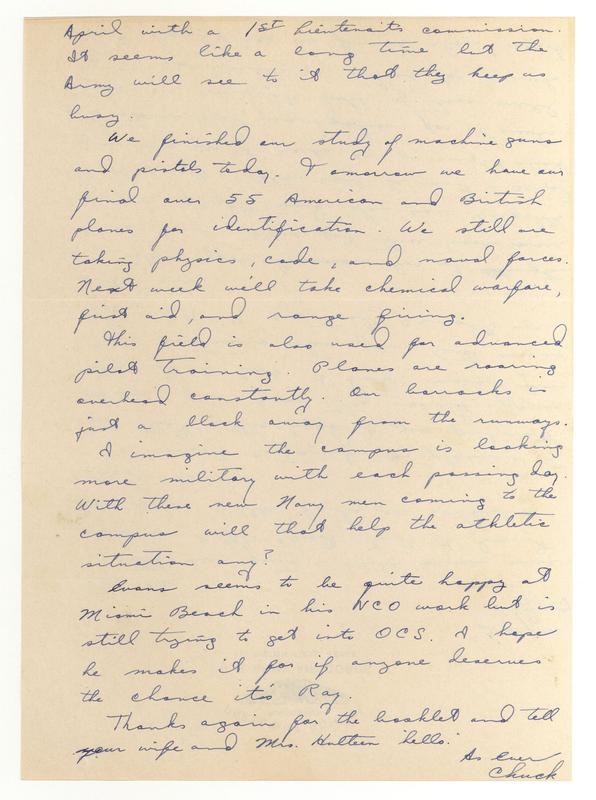 April with a 1st Lieutenant's commission.
It seems like a long time but the
Army will see to it that they keep us
busy.
We finished our study of machine guns
and pistols today. Tomorrow we have our
final over 55 American and British
planes for identification. We still are
taking physics, code, and naval forces.
Next week we'll take chemical warfare,
first aid, and range firing.
This field is also used for advanced
pilot training. Planes are roaring
overhead constantly. Our barracks is
just a block away from the runways.
I imagine the campus is looking
more military with each passing day.
With these new Navy men coming to the
campus will that help the athletic
situation any?
Evans seems to be quite happy at
Miami Beach in his NCO work but is
still trying to get into OCS. I hope
he makes it for if anyone deserves
the chance it's Ray.
Thanks again for the booklet and tell
your wife and Mrs. Hulteen hello.
As ever
Chuck